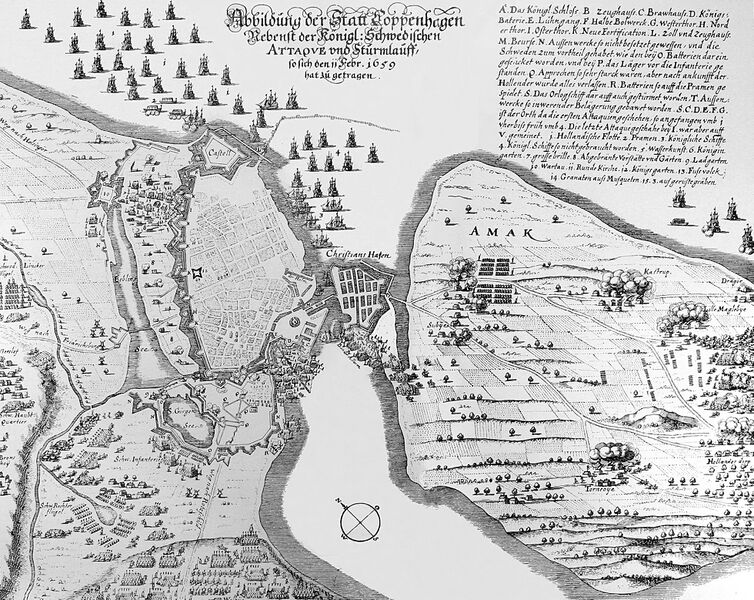 Abbildung der Statt Coppenhagen
Nebenst der Königl: Schwedischen
ATTAQVE vnd Sturmlauff,
so sich den 11 Febr. 1659
hat zu getragen.
A. Das Königl. Schloß. B Zeughauß. C. Brawhauß. D. Königs:
Baterie. E. Lühngang. F Halbe Bolwerck. G. Westerthor. H. Nord
er thor. I. Osterthor. K. Neue Fortification. L. Zoll vnd Zeughauß.
M. Beurse. N. Aussenwercke so nicht besetzet gewesen. vnd die
Schweden zum vortheil gehabt wie den beÿ O. Batterien darein
vnd beÿ P. das Lager vor die Infanterie ge
standen. Q. Approchen so sehr starck waren, aber nach ankunfft der
Hollender wurde alles verlassen. R. Batterien sauff die Pramen ge
spielet. S. Das Orlogschiff dar auff auch gestürmet worden. T. Aussen
wercke so in werender Belagerung gebawet worden. S. C. D. E. F. G.
ist der örth da die ersten Attaquien geschehen, so angefangen vmb
vhr biß fruh vmb 4. Die letzte Attaque geschahe beÿ I. war aber auff
V. gemeinet. 1. Holländische Flotte. 2. Pramen. 3. Königliche Schiffe
4. Königl. Schiffe so nicht gebraucht worden. 5. Wasserkunst. 6. Königin
garten. 7. grosse brille. 8. Abgebrante Vorstätte vnd Gärten. 9. Ladgarten
10. Wartau. 11. Runde Kirche. 12. Königsgarten. 13. Fusvolck.
14. Granaten auß Musqueten. 15. auf geriste graben.
Castell
AMAK
Christians Hafen
Kastrup.
See.
See.
Schw. Infanterie
Quartier